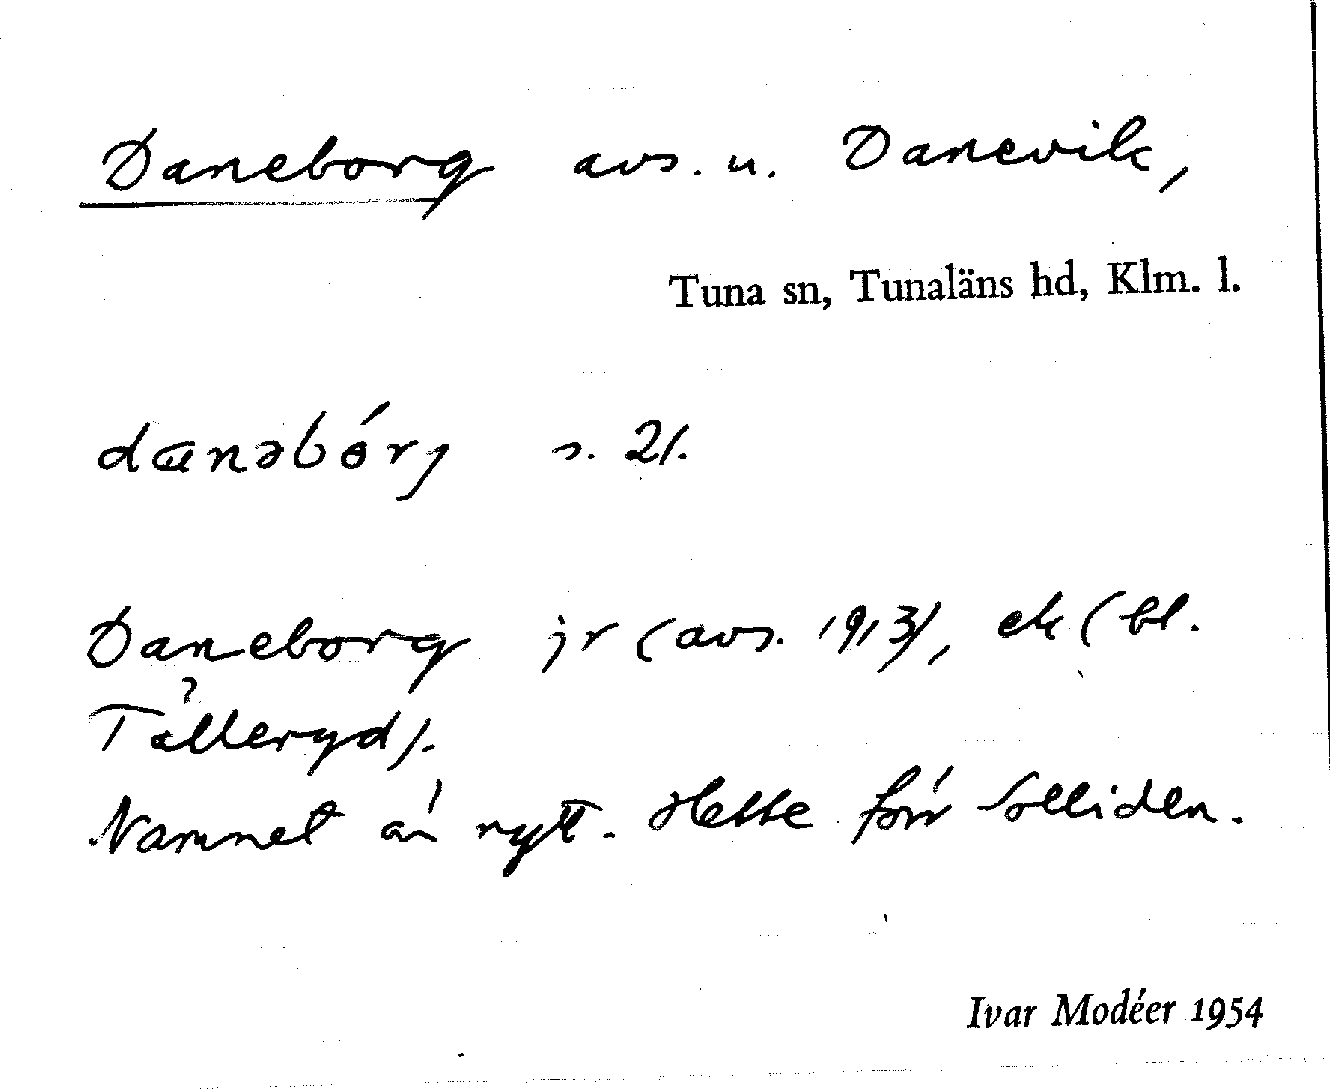 Daneborg avs. u. Danevik,
Tuna sn, Tunaläns hd, Klm. l.
dɑnəbórj s. 21.
Daneborg jr (avs. 1913), ek (bl.
Tålleryd).
Namnet är nytt. Hette förr Solliden.
Ivar Modéer 1954